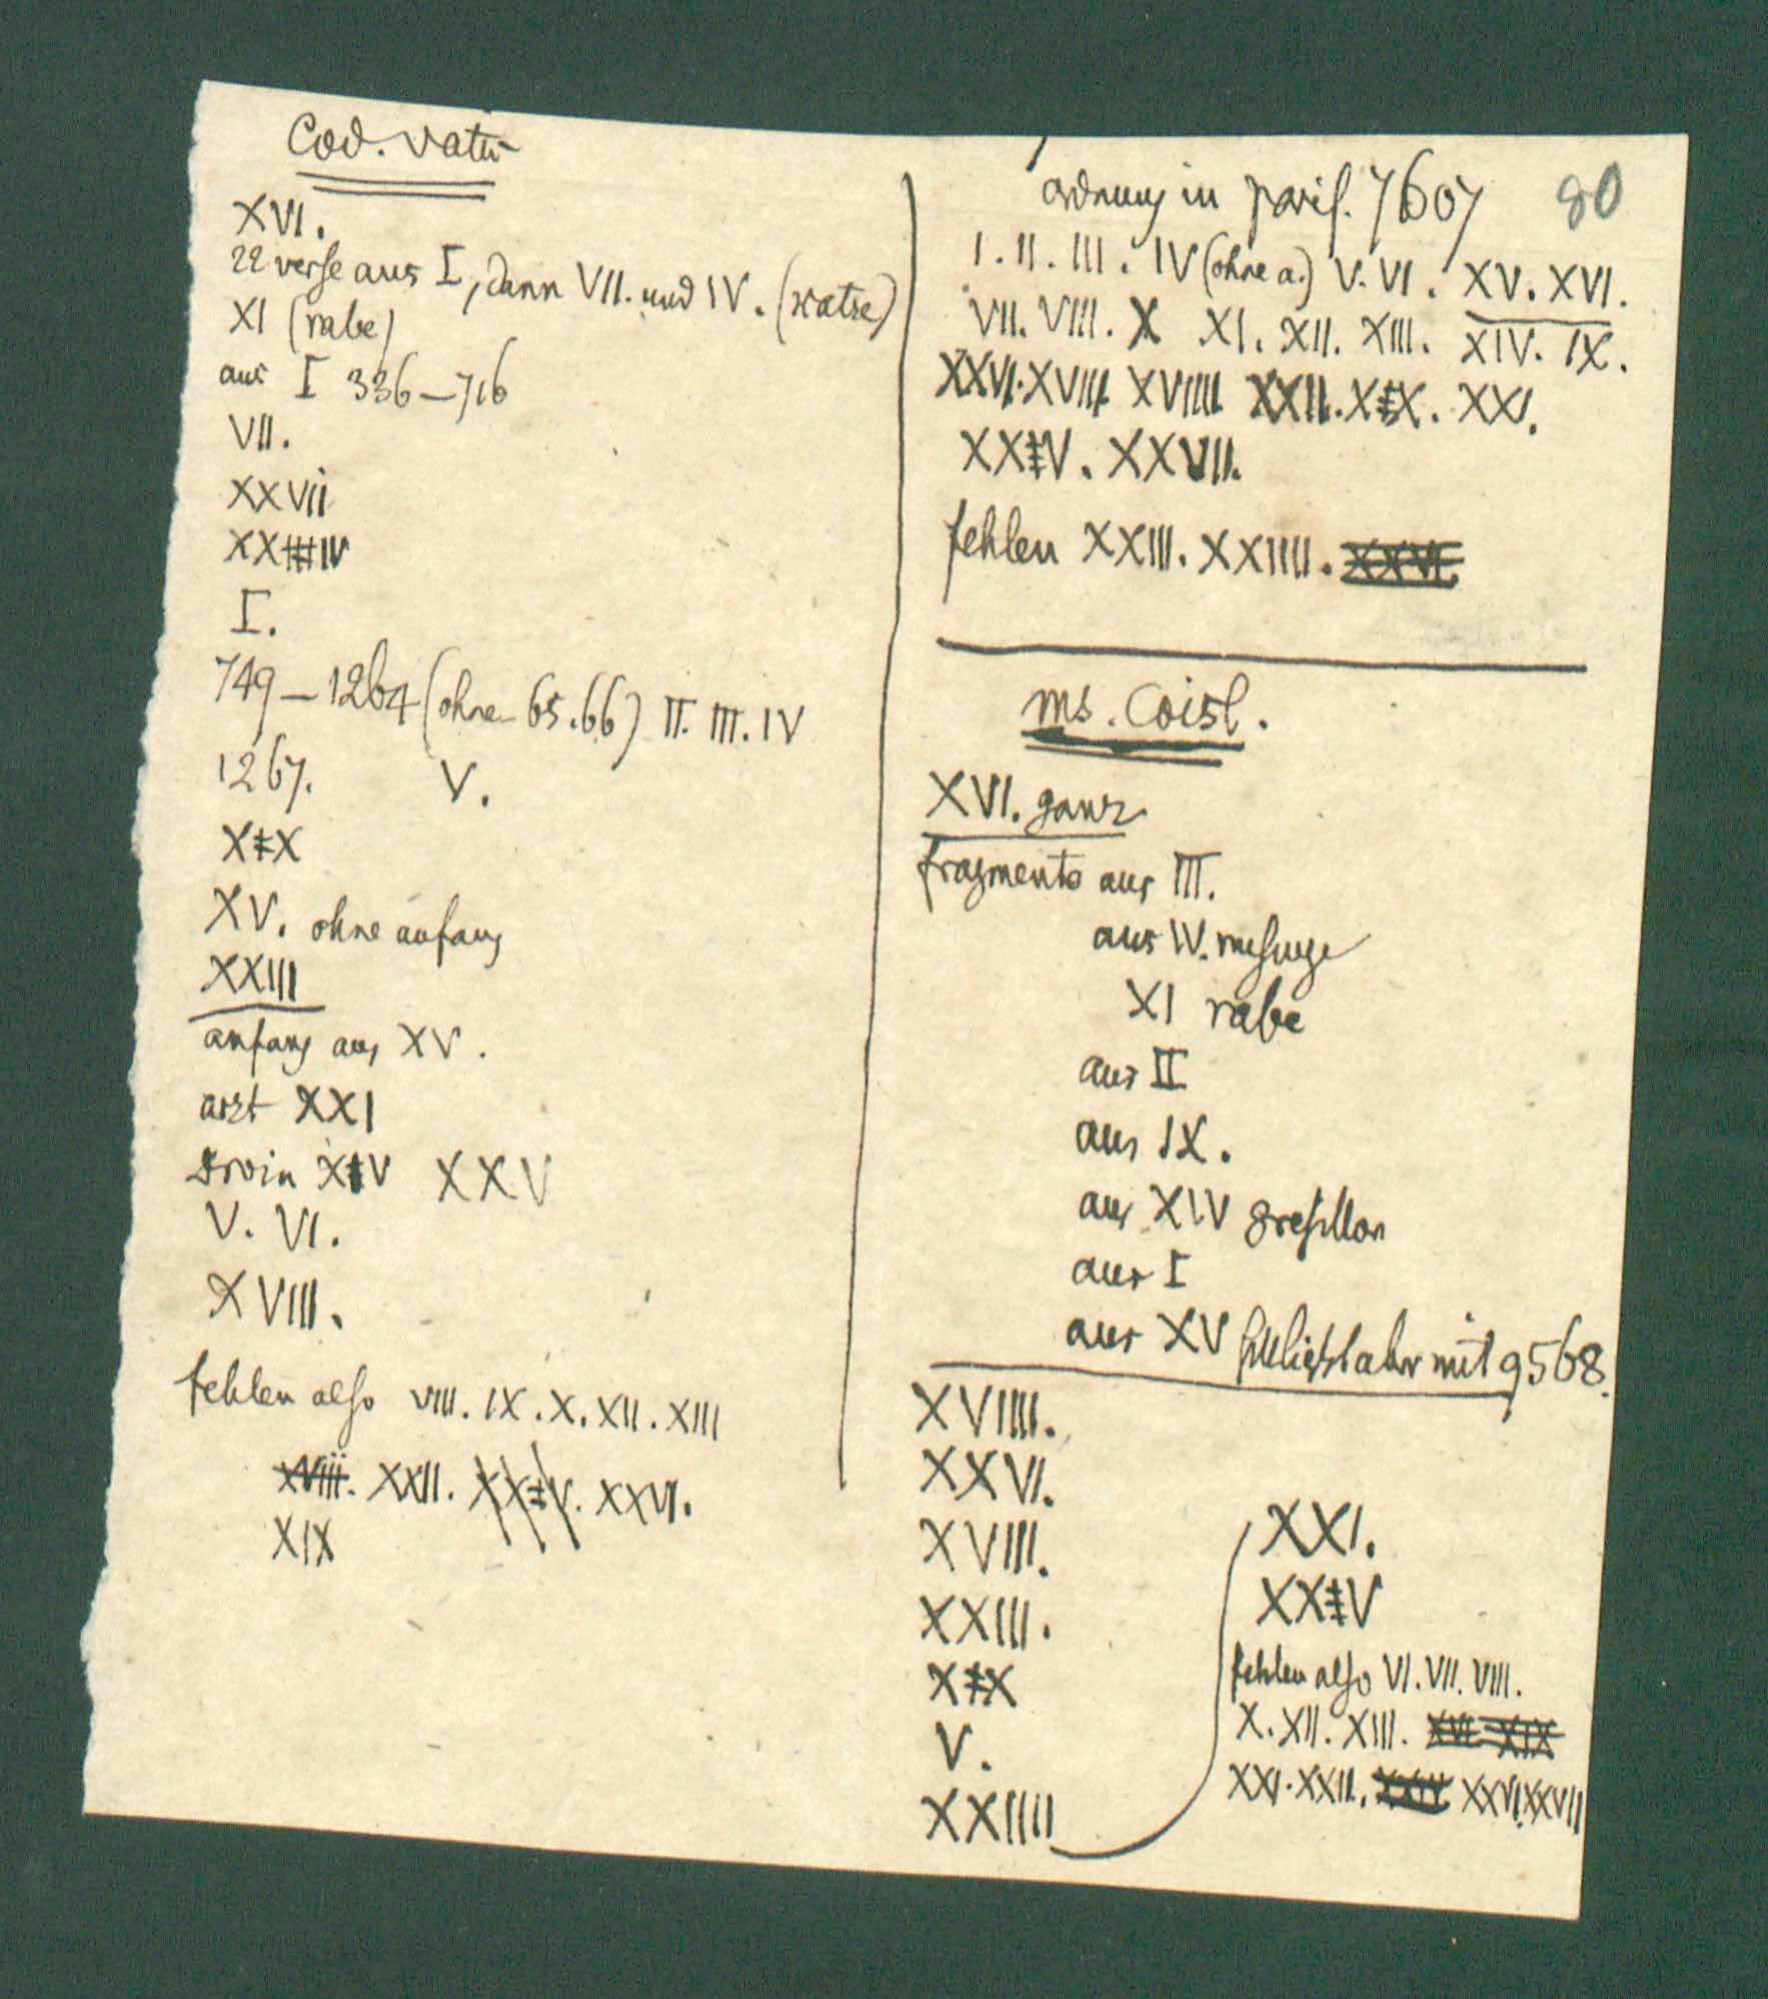 Cod. Vatic
XVI.
22 verse aus I, dann VII. und IV. (katze)
XI (rabe)
aus I 336–716
VII.
XXVII
XXIV
I.
749–1264 (ohne 65.66) II. III. IV
1267. V.
XX
XV. ohne anfang
XXIII
anfang aus XV.
arzt XXI
droin XV XXV
V. VI.
XVIII.
fehlen also VIII. IX. X. XII. XIII
XVIII. XXII. XXV. XXVI.
XIX
ordnung in paris. 7607
80
I. II. III. IV (ohne a.) V. VI. XV. XVI.
VII. VIII. X XI. XII. XIII. XIV. IX.
XXVI. XVIII XVIIII XXII. XX. XXI.
XXV. XXVII.
fehlen XXIII. XXIIII. XXVI.
ms. Coisl.
XVI. ganz
fragmente aus III.
aus IV.
XI rabe
aus II
aus IX.
aus XIV gresillon
aus I
aus XV schliesst aber mit 9568.
XVIIII.
XXVI.
XVIII.
XXIII.
XX
V.
XXIIII
XXI.
XXV
fehlen also VI. VII. VIII.
X. XII. XIII. XVI XIX
XXI. XXII. XXIV XXVI. XXVII